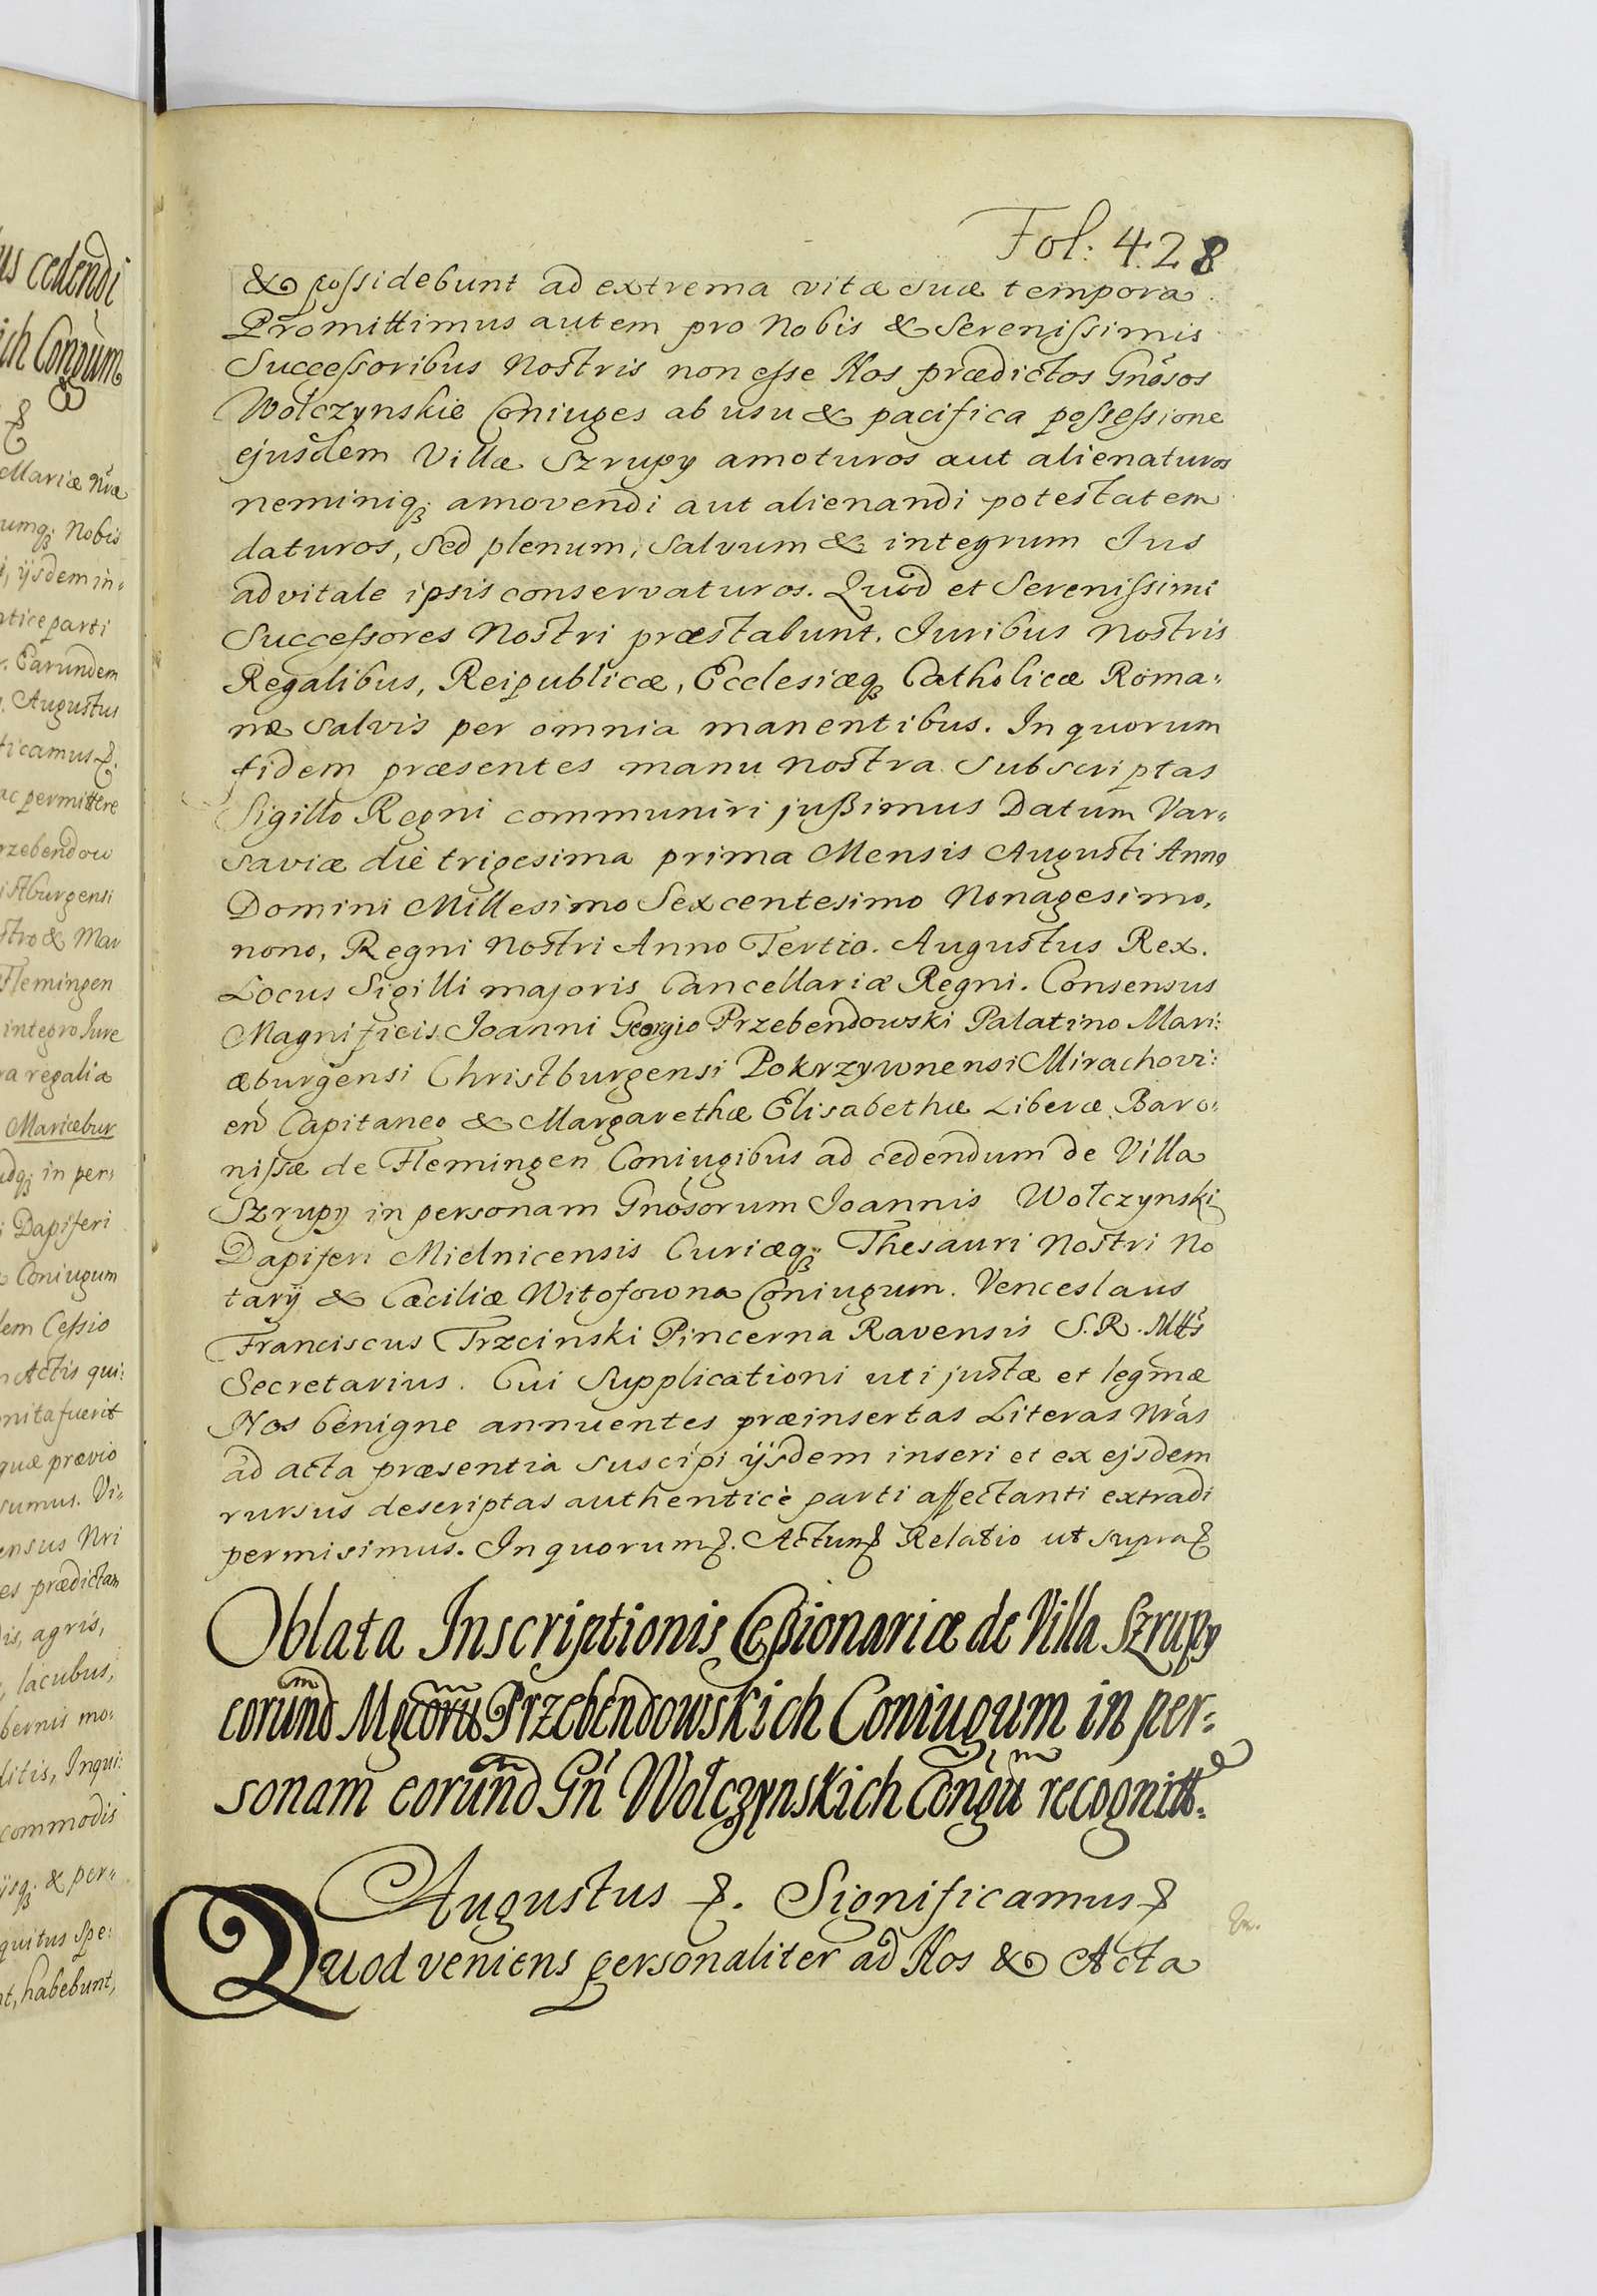 us cedendi
ich Coniugum
Mariæ Nræ
umq; Nobis
ijsdem in=
parti
Earundem
Augustus
ticamus
ac permittere
rzebendow
istburgensi
stro & Mar
Flemingen
integro Jure
ra regalia
Mariæbur
udq; in per=
Dapiferi
Coniugum
dem Cessio
Actis qui:
nita fuerit
quæ prævio
sumus. Vi=
ensus Nri
es prædictam
is, agris,
lacubus,
bernis mo:
ditis, Inqui:
commodis
ijsq; & per=
quitus Spe:
nt, habebunt,
Fol: 428
& possidebunt ad extrema vitæ suæ tempora.
Promittimus autem pro Nobis & Serenissimis
Successoribus Nostris non esse Nos prædictos Gnósos
Wołczynskie Coniuges ab usu & pacifica possessione
ejusdem Villæ Szrupy amoturos aut alienaturos
neminiq; amovendi aut alienandi potestatem
daturos, sed plenum, salvum & integrum Jus
advitale ipsis conservaturos. Quod et Serenissimi
Successores Nostri præstabunt. Juribus Nostris
Regalibus, Reipublicæ, Ecclesiæq; Catholicæ Roma=
næ salvis per omnia manentibus. In quorum
fidem præsentes manu nostra subscriptas
Sigillo Regni communiri jußimus Datum Var=
saviæ die trigesima prima Mensis Augusti Anno
Domini Millesimo Sexcentesimo Nonagesimo,
nono, Regni Nostri Anno Tertio. Augustus Rex.
Locus Sigilli majoris Cancellariæ Regni. Consensus
Magnificis Joanni Georgio Przebendowski Palatino Mari:
æburgensi Christburgensi Pokrzywnensi Mirachovi:
en Capitaneo & Margarethæ Elisabethæ Liberæ Baro:
nissæ de Flemingen Coniugibus ad cedendum de Villa
Szrupy in personam Gnósorum Joannis Wołczynski
Dapiferi Mielnicensis Curiæq; Thesauri Nostri No
tarij & Cæciliæ Witosowna Coniugum. Venceslaus
Franciscus Trzcinski Pincerna Ravensis S.R. Mttis
Secretarius. Cui Supplicationi uti justæ et legmæ
Nos benigne annuentes præinsertas Literas Nras
ad acta præsentia suscipi ijsdem inseri et ex ejsdem
rursus descriptas authenticè parti affectanti extradi
permisimus. In quorum. Actum Relatio ut supra
Oblata Inscriptionis Ceßionariæ de Villa Szrupy
eorund Mgcoru Przebendowskich Coniugum in per=
sonam eorund Gn Wołczynskich Congu recognitt.
Augustus. Significamus
Quod veniens personaliter ad Nos & Acta